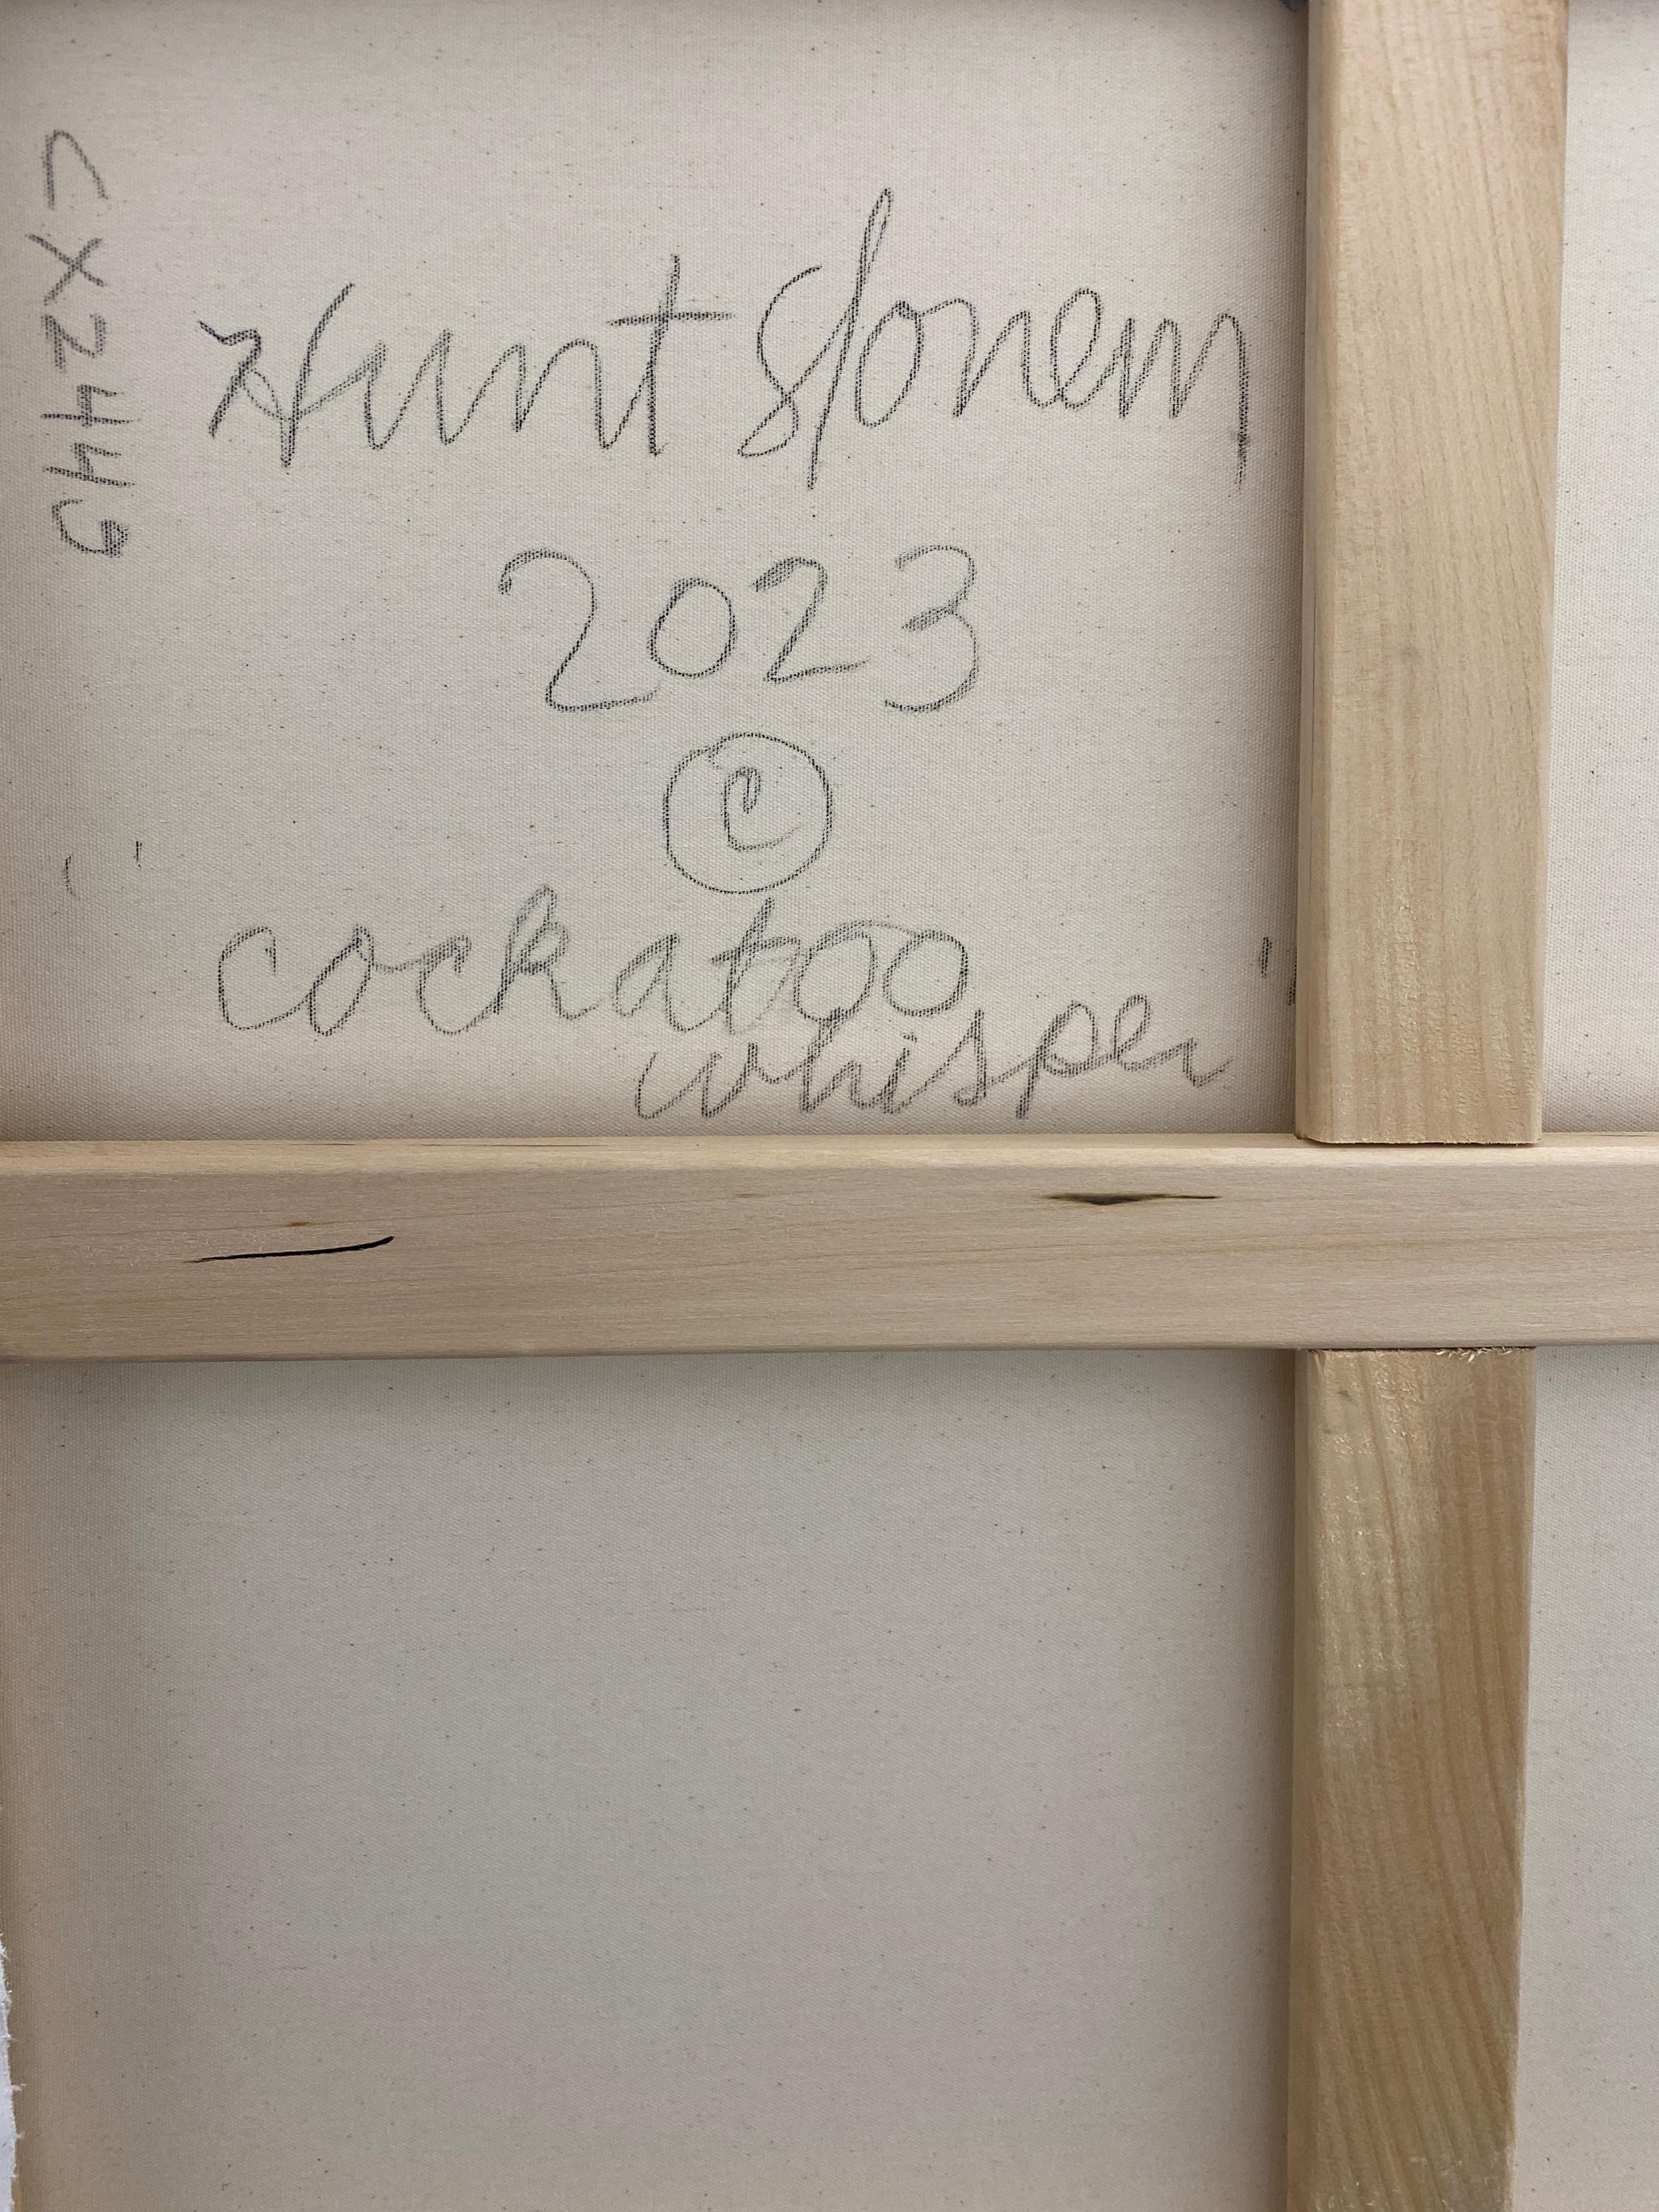 Hunt Slonem
2023
©
cockatoo
whisper
CXZ449